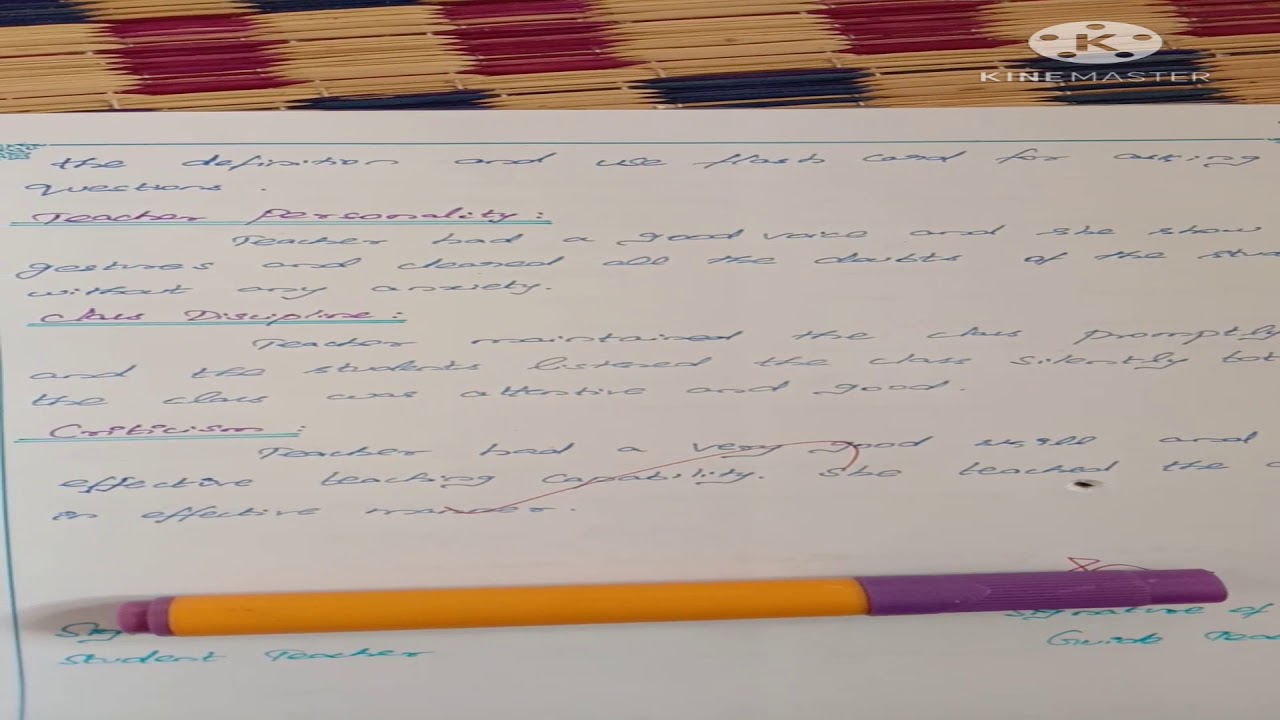 KINEMASTER
the definition and use flash card for asking
questions.
Teacher Personality:
Teacher had a good voice and she show
gestures and cleared all the doubts of the stu
without any anxiety.
Class Discipline:
Teacher maintained the class promptly
and the students listened the class silently tot
the class was attentive and good.
Criticism:
Teacher had a very good skill and
effective teaching capability. She teached the
in effective manner.
Signature of
Student Teacher
Guide Tea